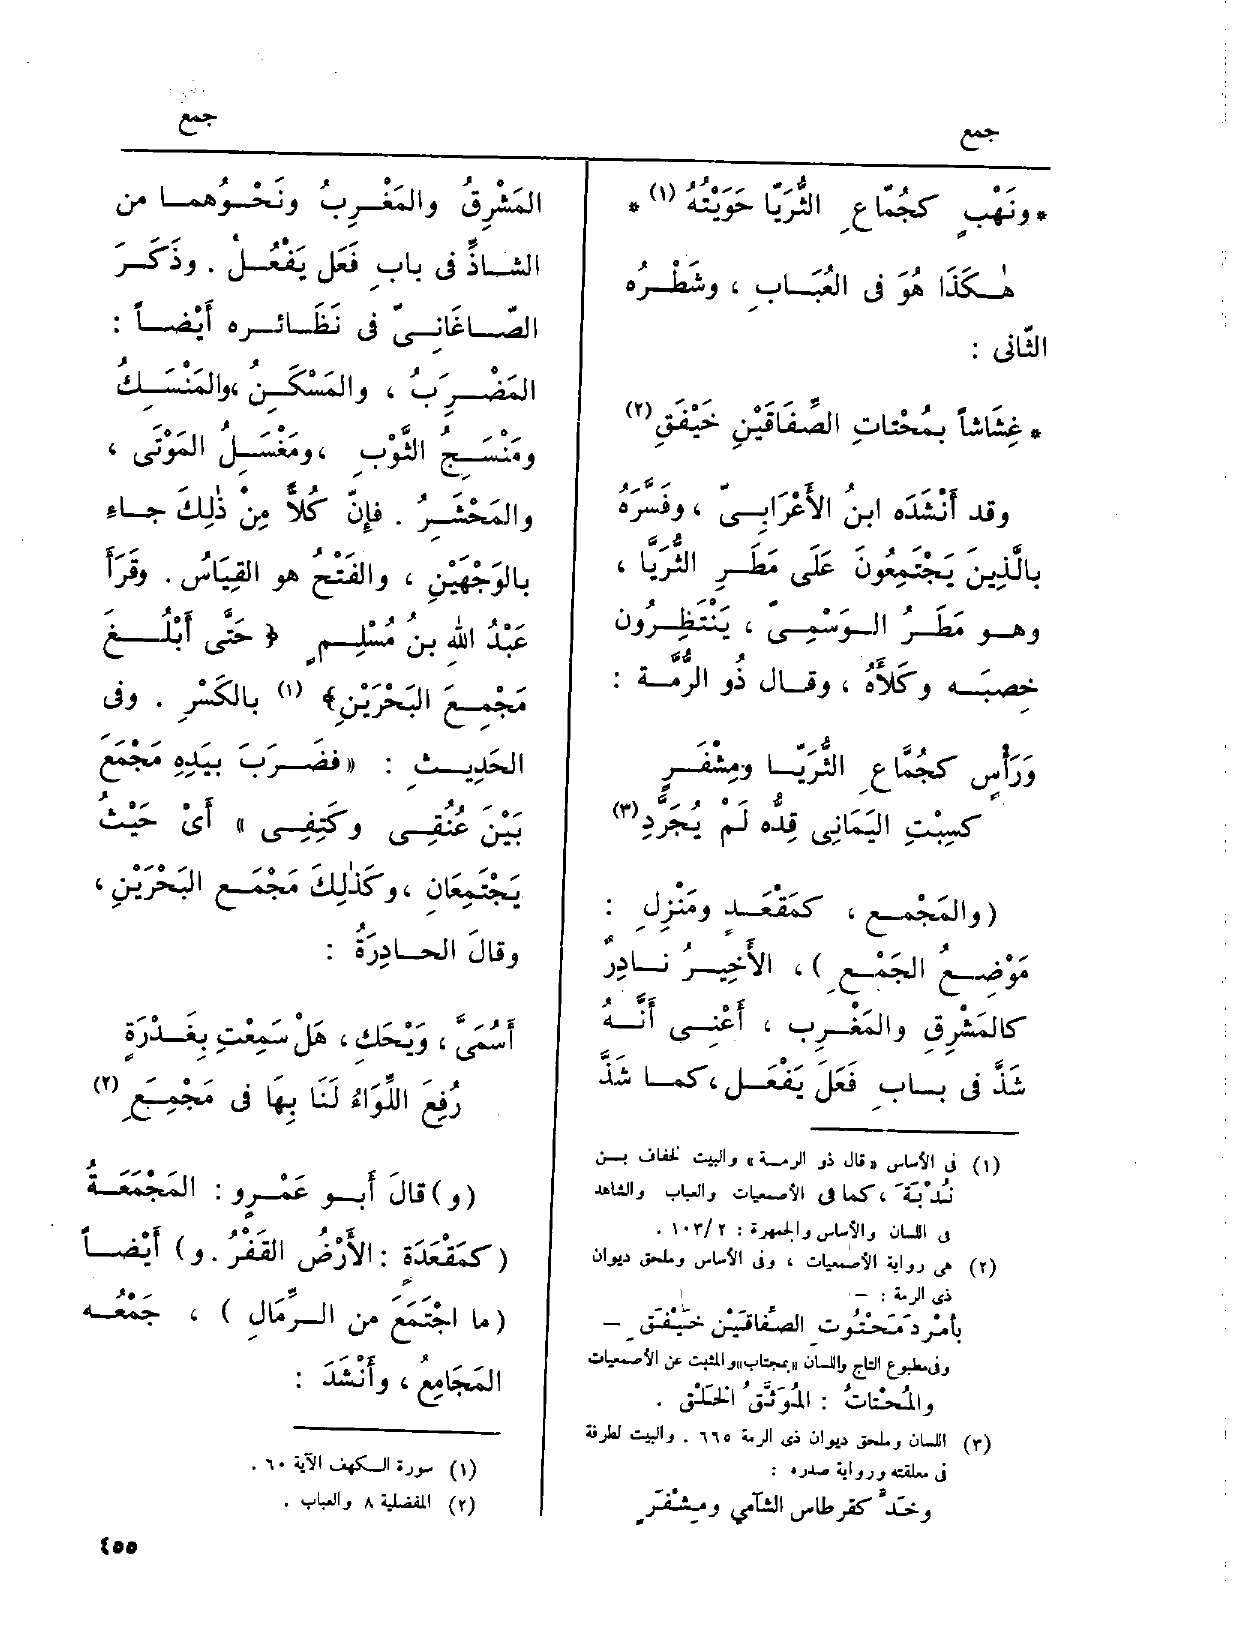 جمع
جمع
* ونَهْبٍ كجُمّاعِ الثُّرَيّا حَوَيْتُهُ (١) *
هٰكَذَا هُوَ فى العُبَابِ ، وشَطْرُه
الثّانى :
* غِشَاشاً بمُحْتاتِ الصِّفَاقَيْنِ خَيْفَقِ (٢)
وقد أَنْشَدَه ابنُ الأَعْرَابِىّ ، وفَسَّرَهُ
بالَّذِينَ يَجْتَمِعُونَ عَلَى مَطَرِ الثُّرَيَّا ،
وهو مَطَرُ الوَسْمِىّ ، يَنْتَظِرُون
خِصبَه وكَلَأَهُ ، وقال ذُو الرُّمَّة :
وَرَأْسٍ كجُمَّاعِ الثُّرَيّا ومِشْفَرٍ
كسِبْتِ اليَمَانِى قِدُّه لَمْ يُجَرَّدِ (٣)
(والمَجْمع ، كمَقْعَدٍ ومَنْزِلٍ :
مَوْضِعُ الجَمْعِ )، الأَخِيرُ نادِرٌ
كالمَشْرِقِ والمَغْرِب ، أَعْنِى أَنَّهُ
شَذَّ فى بابِ فَعَلَ يَفْعَل ، كما شَذَّ
(١) فى الأساس «قال ذو الرمة» والبيت لخفاف بن
نُدْبَة ، كما فى الأصمعيات والعباب والشاهد
فى اللسان والأساس والجمهرة : ١٠٣/٢ .
(٢) هى رواية الأصمعيات ، وفى الأساس وملحق ديوان
ذى الرمة : –
بأمْرَدَ مَحْتُوتِ الصِّفاقَيْن خَيْفَقِ –
وفى مطبوع التاج واللسان «بمجتاب» والمثبت عن الأصمعيات
والمُحْتاتُ : المُوَثَّقُ الخَلْق .
(٣) اللسان وملحق ديوان ذى الرمة ٦٦٥ . والبيت لطرفة
فى معلقته ورواية صدره :
وخَدٌّ كقرطاس الشآمي ومِشْفَرٍ
المَشْرِقُ والمَغْرِبُ ونَحْوُهما من
الشاذِّ فى بابِ فَعَل يَفْعُلُ . وذَكَرَ
الصّاغَانِىّ فى نَظَائره أَيْضاً :
المَضْرِبُ ، والمَسْكَنُ ، والمَنْسَكُ
ومَنْسَجُ الثَّوْبِ ، ومَغْسَلُ المَوْتَى ،
والمَحْشَرُ . فإِنَّ كُلاًّ مِنْ ذٰلِكَ جاء
بالوَجْهَيْنِ ، والفَتْحُ هو القِيَاسُ . وقَرَأَ
عَبْدُ اللهِ بنُ مُسْلِمٍ ﴿ حَتَّى أَبْلُغَ
مَجْمِعَ البَحْرَيْنِ﴾ (١) بالكَسْرِ . وفى
الحَدِيثِ : «فضَرَبَ بيَدِهِ مَجْمَعَ
بَيْنَ عُنُقِى وكَتِفِى » أَىْ حَيْثُ
يَجْتَمِعَانِ ، وكَذٰلِكَ مَجْمَع البَحْرَيْنِ ،
وقالَ الحادِرَةُ :
أَسُمَىَّ ، وَيْحَكِ ، هَلْ سَمِعْتِ بِغَدْرَةٍ
رُفِعَ اللِّوَاءُ لَنَا بِهَا فى مَجْمِعِ (٢)
(و) قالَ أَبو عَمْرٍو : المَجْمَعَةُ
(كمَقْعَدَةٍ : الأَرْضُ القَفْرُ . و) أَيْضاً
(ما اجْتَمَعَ من الرِّمَالِ ) ، جَمْعُه
المَجَامِعُ ، وأَنْشَدَ :
(١) سورة الكهف الآية ٦٠ .
(٢) المفضلية ٨ والعباب .
٤٥٥